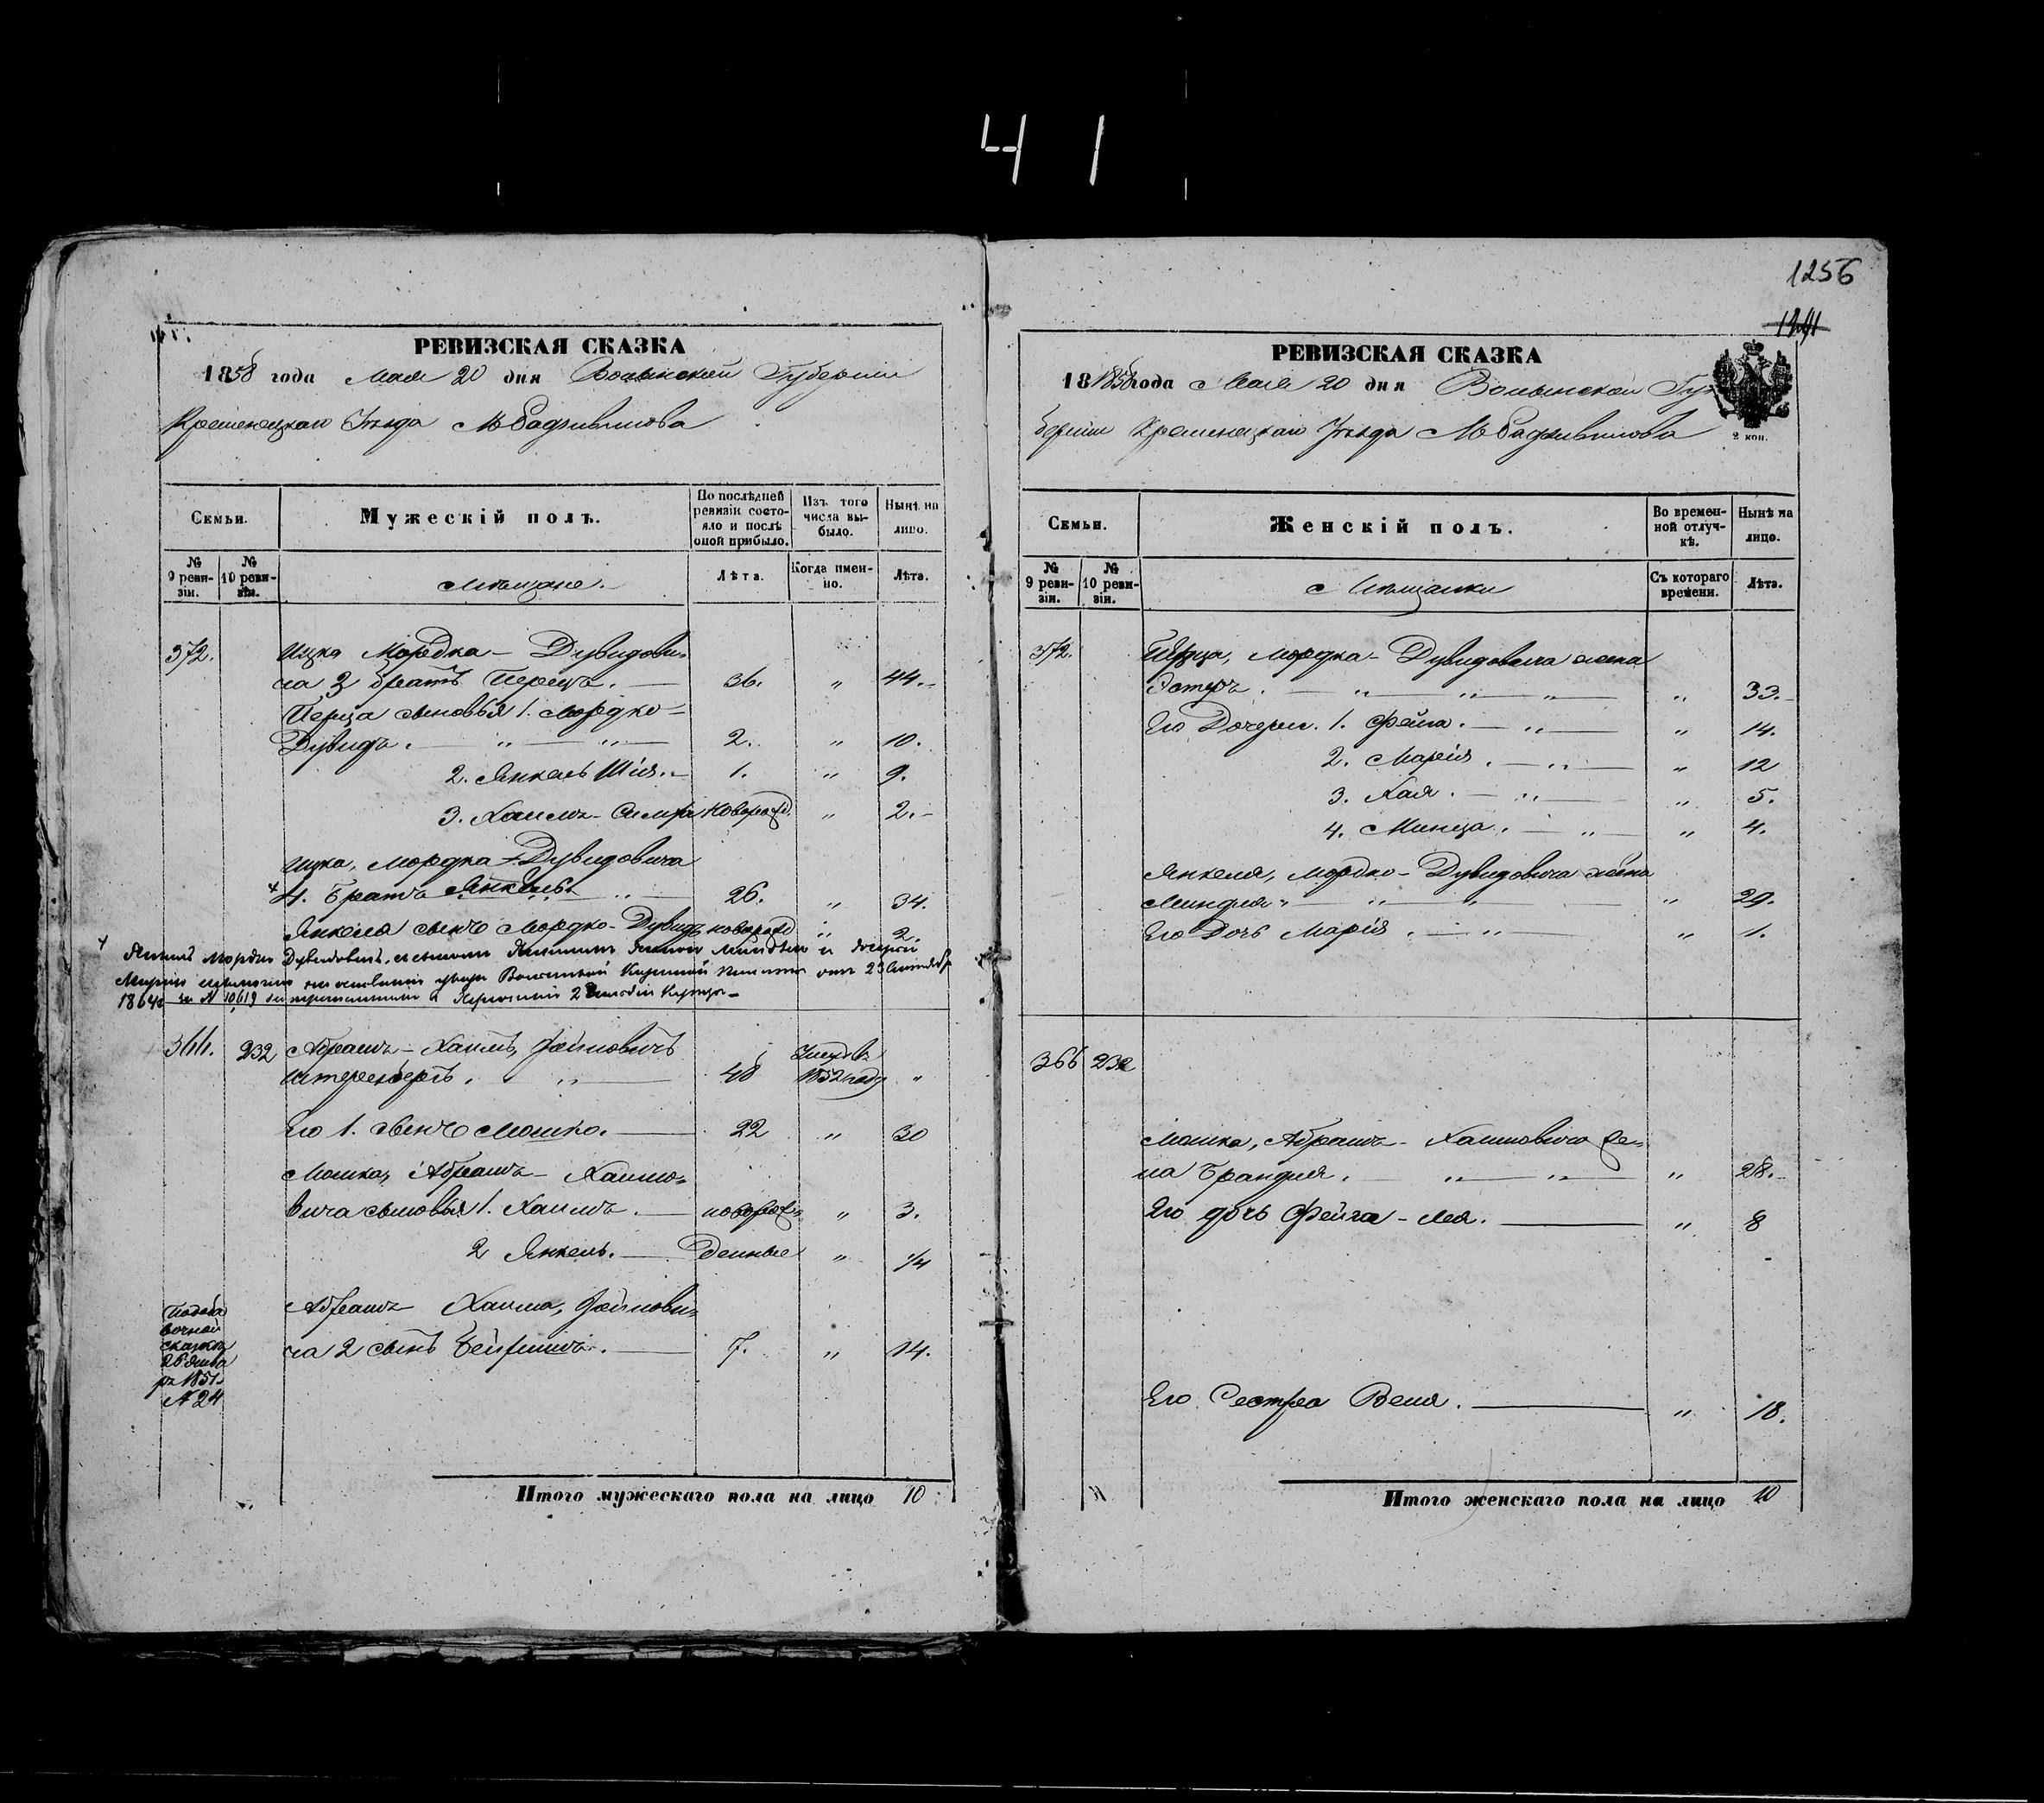 41
1256
1241
РЕВИЗСКАЯ СКАЗКА
1858 года Мая 20 дня Волынской Губернии
Кременецкаго Уѣзда М Радзивилова
Семьи.
Мужескій полъ.
По послѣдней ревизіи состояло и послѣ оной прибыло.
Изъ того числа выбыло.
Нынѣ на лицо.
№ 9 ревизіи.
№ 10 ревизіи.
Мѣщане.
Лѣта.
Когда именно.
Лѣта.
372. Ицка Мордка-Дувидови-
ча 3 братъ Перецъ. 36. " 44.
Перца сыновья 1. Мордко-
Дувидъ. " " 2. " 10.
2. Янкель Шія. 1. " 9.
3. Хаимъ-Симха новорожд. " 2.
Ицка, Мордка-Дувидовича
4. Братъ Янкель " 26. " 34.
Янкеля сынъ Мордко-Дувидъ новорожд " 2.
Мордко Дувидовичъ, съ сыномъ женою и дочерью
на основании указа Волынской Казенной Палаты отъ 23
1864 за № 10,619
366. 232 Абрамъ-Хаимъ,
Штеренберъ. " 48 Умеръ въ 1852 году "
Его 1. сынъ Мошко. 22 " 30
Мошка, Абрамъ-Хаимо-
вича сыновья 1. Хаимъ. новорож- " 3.
2 Янкель. денные " 1/4
Абрамъ Хаима,
ча 2 сынъ 7. " 14.
Подоба
вочной
сказкѣ
26 Янва
ря 1851
№ 24
Итого мужескаго пола на лицо 10
РЕВИЗСКАЯ СКАЗКА
18 1858 года Мая 20 дня Волынской Гу-
берніи Кременецкаго Уѣзда М Радзивилова
2 коп.
Семьи.
Женскій полъ.
Во временной отлучкѣ.
Нынѣ на лицо.
№ 9 ревизіи.
№ 10 ревизіи.
Мѣщанки
Съ котораго времени.
Лѣта.
372. Перца, Мордка-Дувидовича жена
Эстеръ. " " " " 33.
Его Дочери. 1. Фейга. " " 14.
2. Марія. " " 12
3. Хая. " " 5.
4. Минца. " " 4.
Янкеля, Мордко-Дувидовича жена
Миндля " " " " 29.
Его Дочь Марія. " " 1.
366 232
Мошка, Абрамъ-Хаимовича же-
на Брандля. " " " 28.
Его дочь Фейга-Лея. " 8
Его Сестра Веля. " 18.
Итого женскаго пола на лицо 10